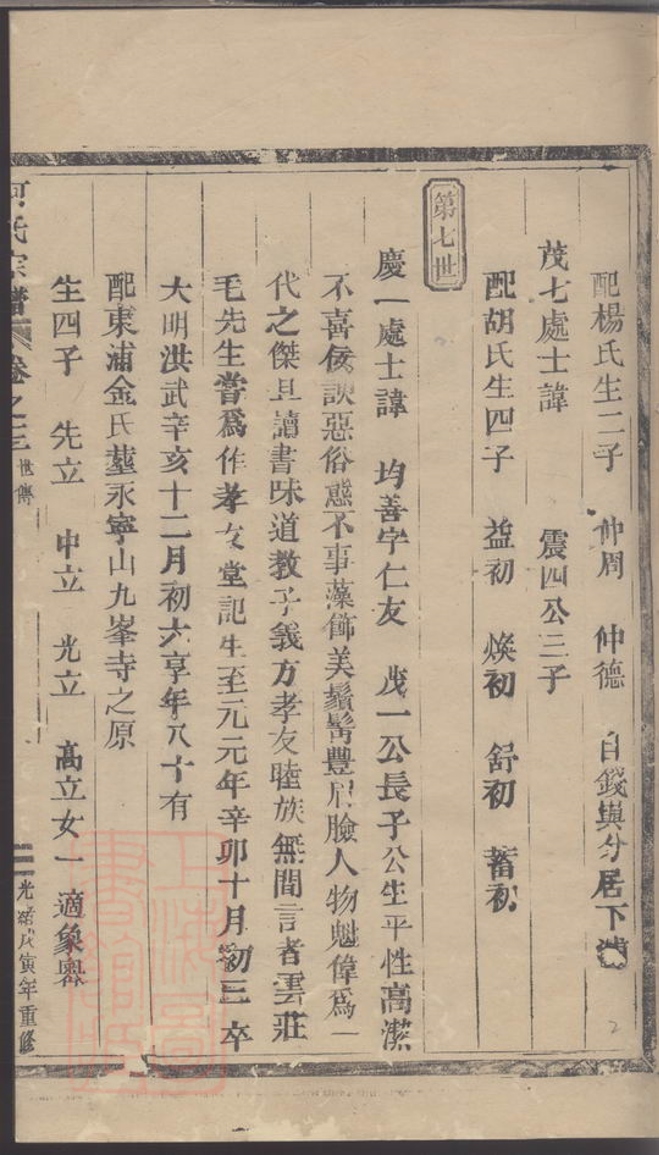 配楊氏生二子 仲周 仲德 自錢㙛分居下
茂七處士諱 震四公三子
配胡氏生四子 益初 煥初 舒初 蓄初
第七世
慶一處士諱 均善字仁友 茂一公長子公生平性高潔
不喜佞諛惡俗態不事藻飾美鬚髯豐眉臉人物魁偉爲一
代之傑且讀書味道教子義方孝友睦族無間言者雲莊
毛先生嘗爲作孝友堂記生至元元年辛卯十月初三卒
大明洪武辛亥十二月初六享年八十有
配東浦金氏塟永寧山九峯寺之原
生四子 先立 中立 光立 高立女一 適象
河氏宗譜 卷之三 世傳 二 光緒戊寅年重修